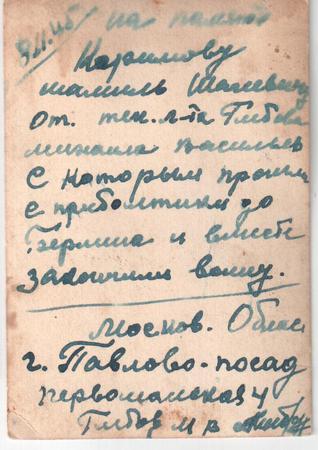 на память
Каримову
Шамиль Шаиевичу
От. тех. л-та Глебова
михаила васильев
С которым прошли
с прибалтики до
Берлина и вместе
закончили войну.
Москов. Облас
г. Павлово-посад
первомайская 4
Глебов м в